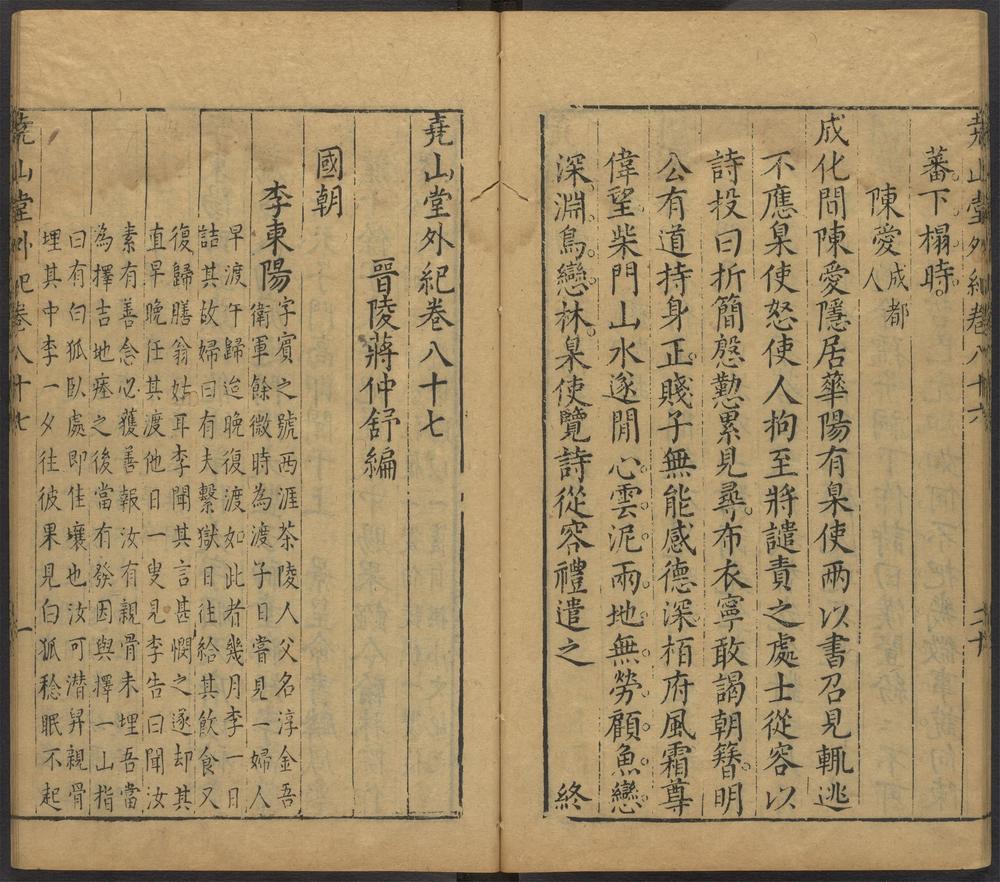 堯山堂外紀卷八十六 二十
蕃下榻時
陳愛成都
人
成化間陳愛隱居華陽有臬使两以書召見輒逃
不應臬使怒使人拘至將譴責之處士從容以
詩投曰折簡慇懃累見尋布衣寧敢謁朝簪明
公有道持身正賤子無能感德深栢府風霜尊
偉望柴門山水遂閒心雲泥兩地無勞顧魚戀
深淵鳥戀林臬使覽詩從容禮遣之 終
堯山堂外紀卷八十七
晉陵蔣仲舒編
國朝
李東陽字賓之號西涯茶陵人父名淳金吾
衛軍餘微時為渡子日嘗見一婦人
早渡午歸迨晚復渡如此者幾月李一日
詰其故婦曰有夫繫獄日往給其飲食又
復歸膳翁姑耳李聞其言甚憫之遂却其
直早晚任其渡他日一叟見李告曰聞汝
素有善念必獲善報汝有親骨未埋吾當
為擇吉地瘞之後當有發因與擇一山指
曰有白狐臥處即佳壤也汝可潛昇親骨
埋其中李一夕往彼果見白狐稔眠不起
堯山堂外紀卷八十七 一